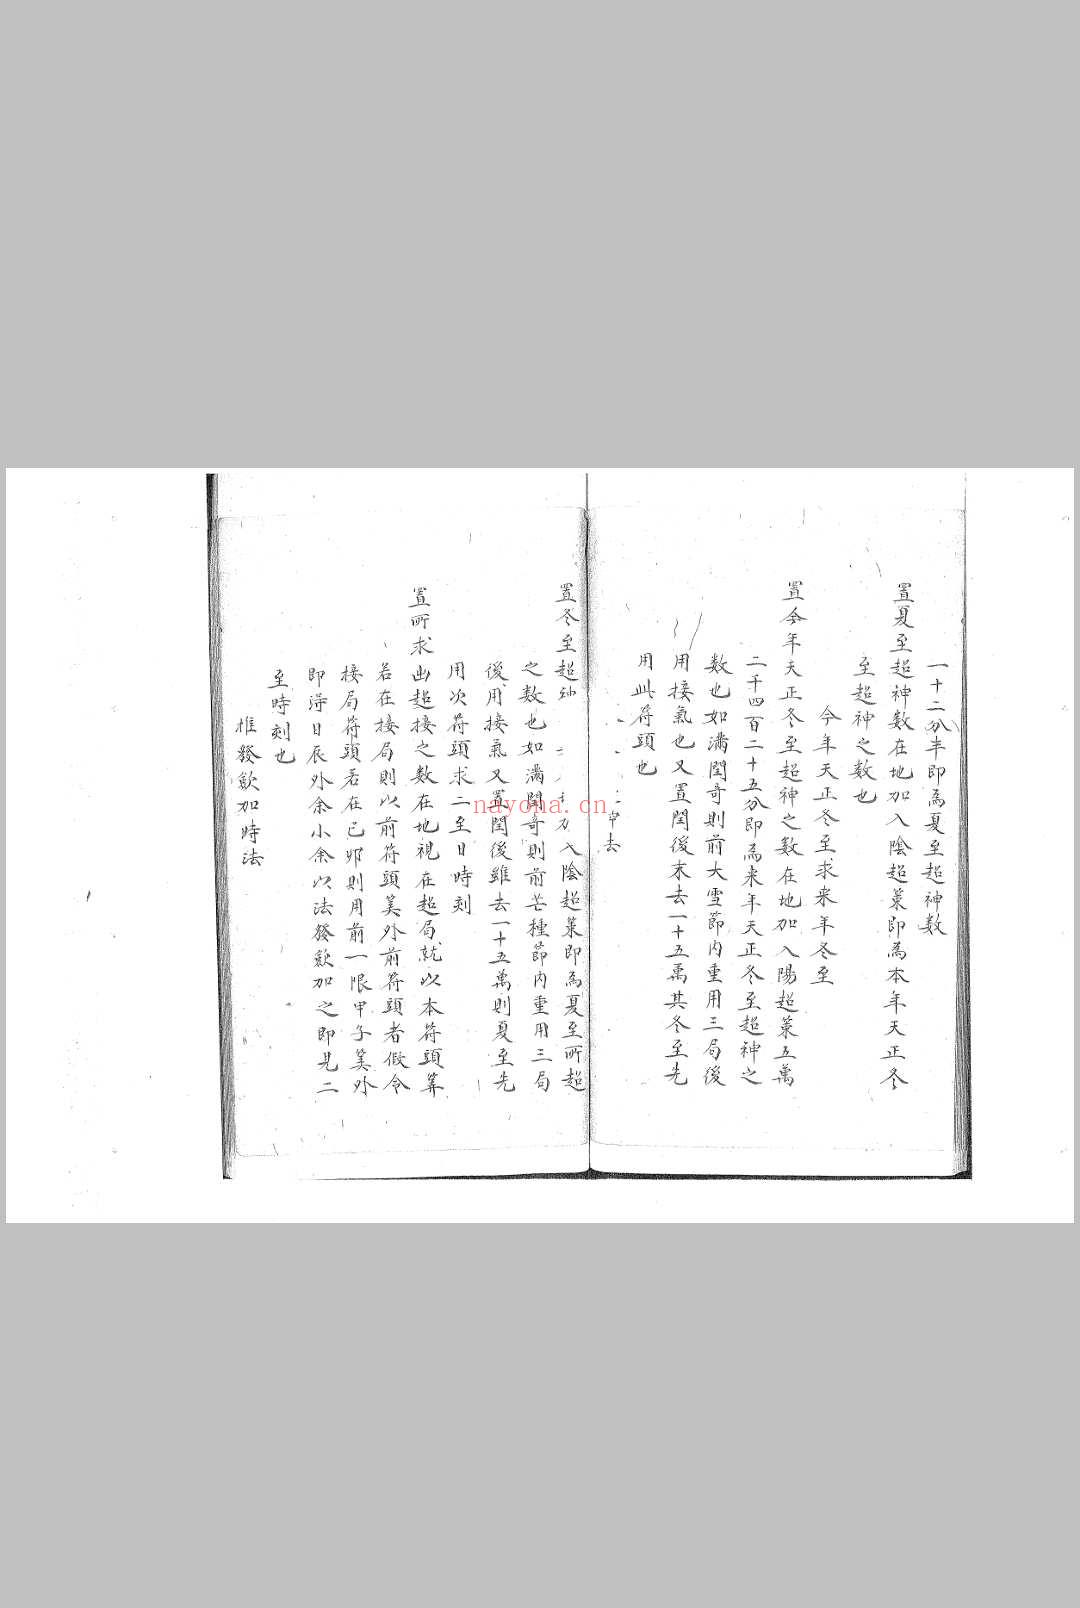 一十二分半即為夏至超神數
置夏至超神數在地加入陰超策即為本年天正冬
至超神之數也
今年天正冬至求來年冬至
置今年天正冬至超神之數在地加入陽超策五萬
二千四百二十五分即為来年天正冬至超神之
数也如滿閏奇則前大雪節内重用三局後
用接氣也又置閏後末去一十五萬其冬至先
用此符頭也
去
置冬至超 入陰超策即為夏至所超
之數也如滿閏奇則前芒種節内重用三局
後用接氣又置閏後雖去一十五萬則夏至先
用次符頭求二至日時刻
置所求出超接之數在地視在超局就以本符頭筭
若在接局則以前符頭筭外前符頭者假令
接局符頭若在己卯則用前一限甲子筭外
即得日辰外余小余以法發歛加之即見二
至時刻也
推發歛加時法
nayona.cn